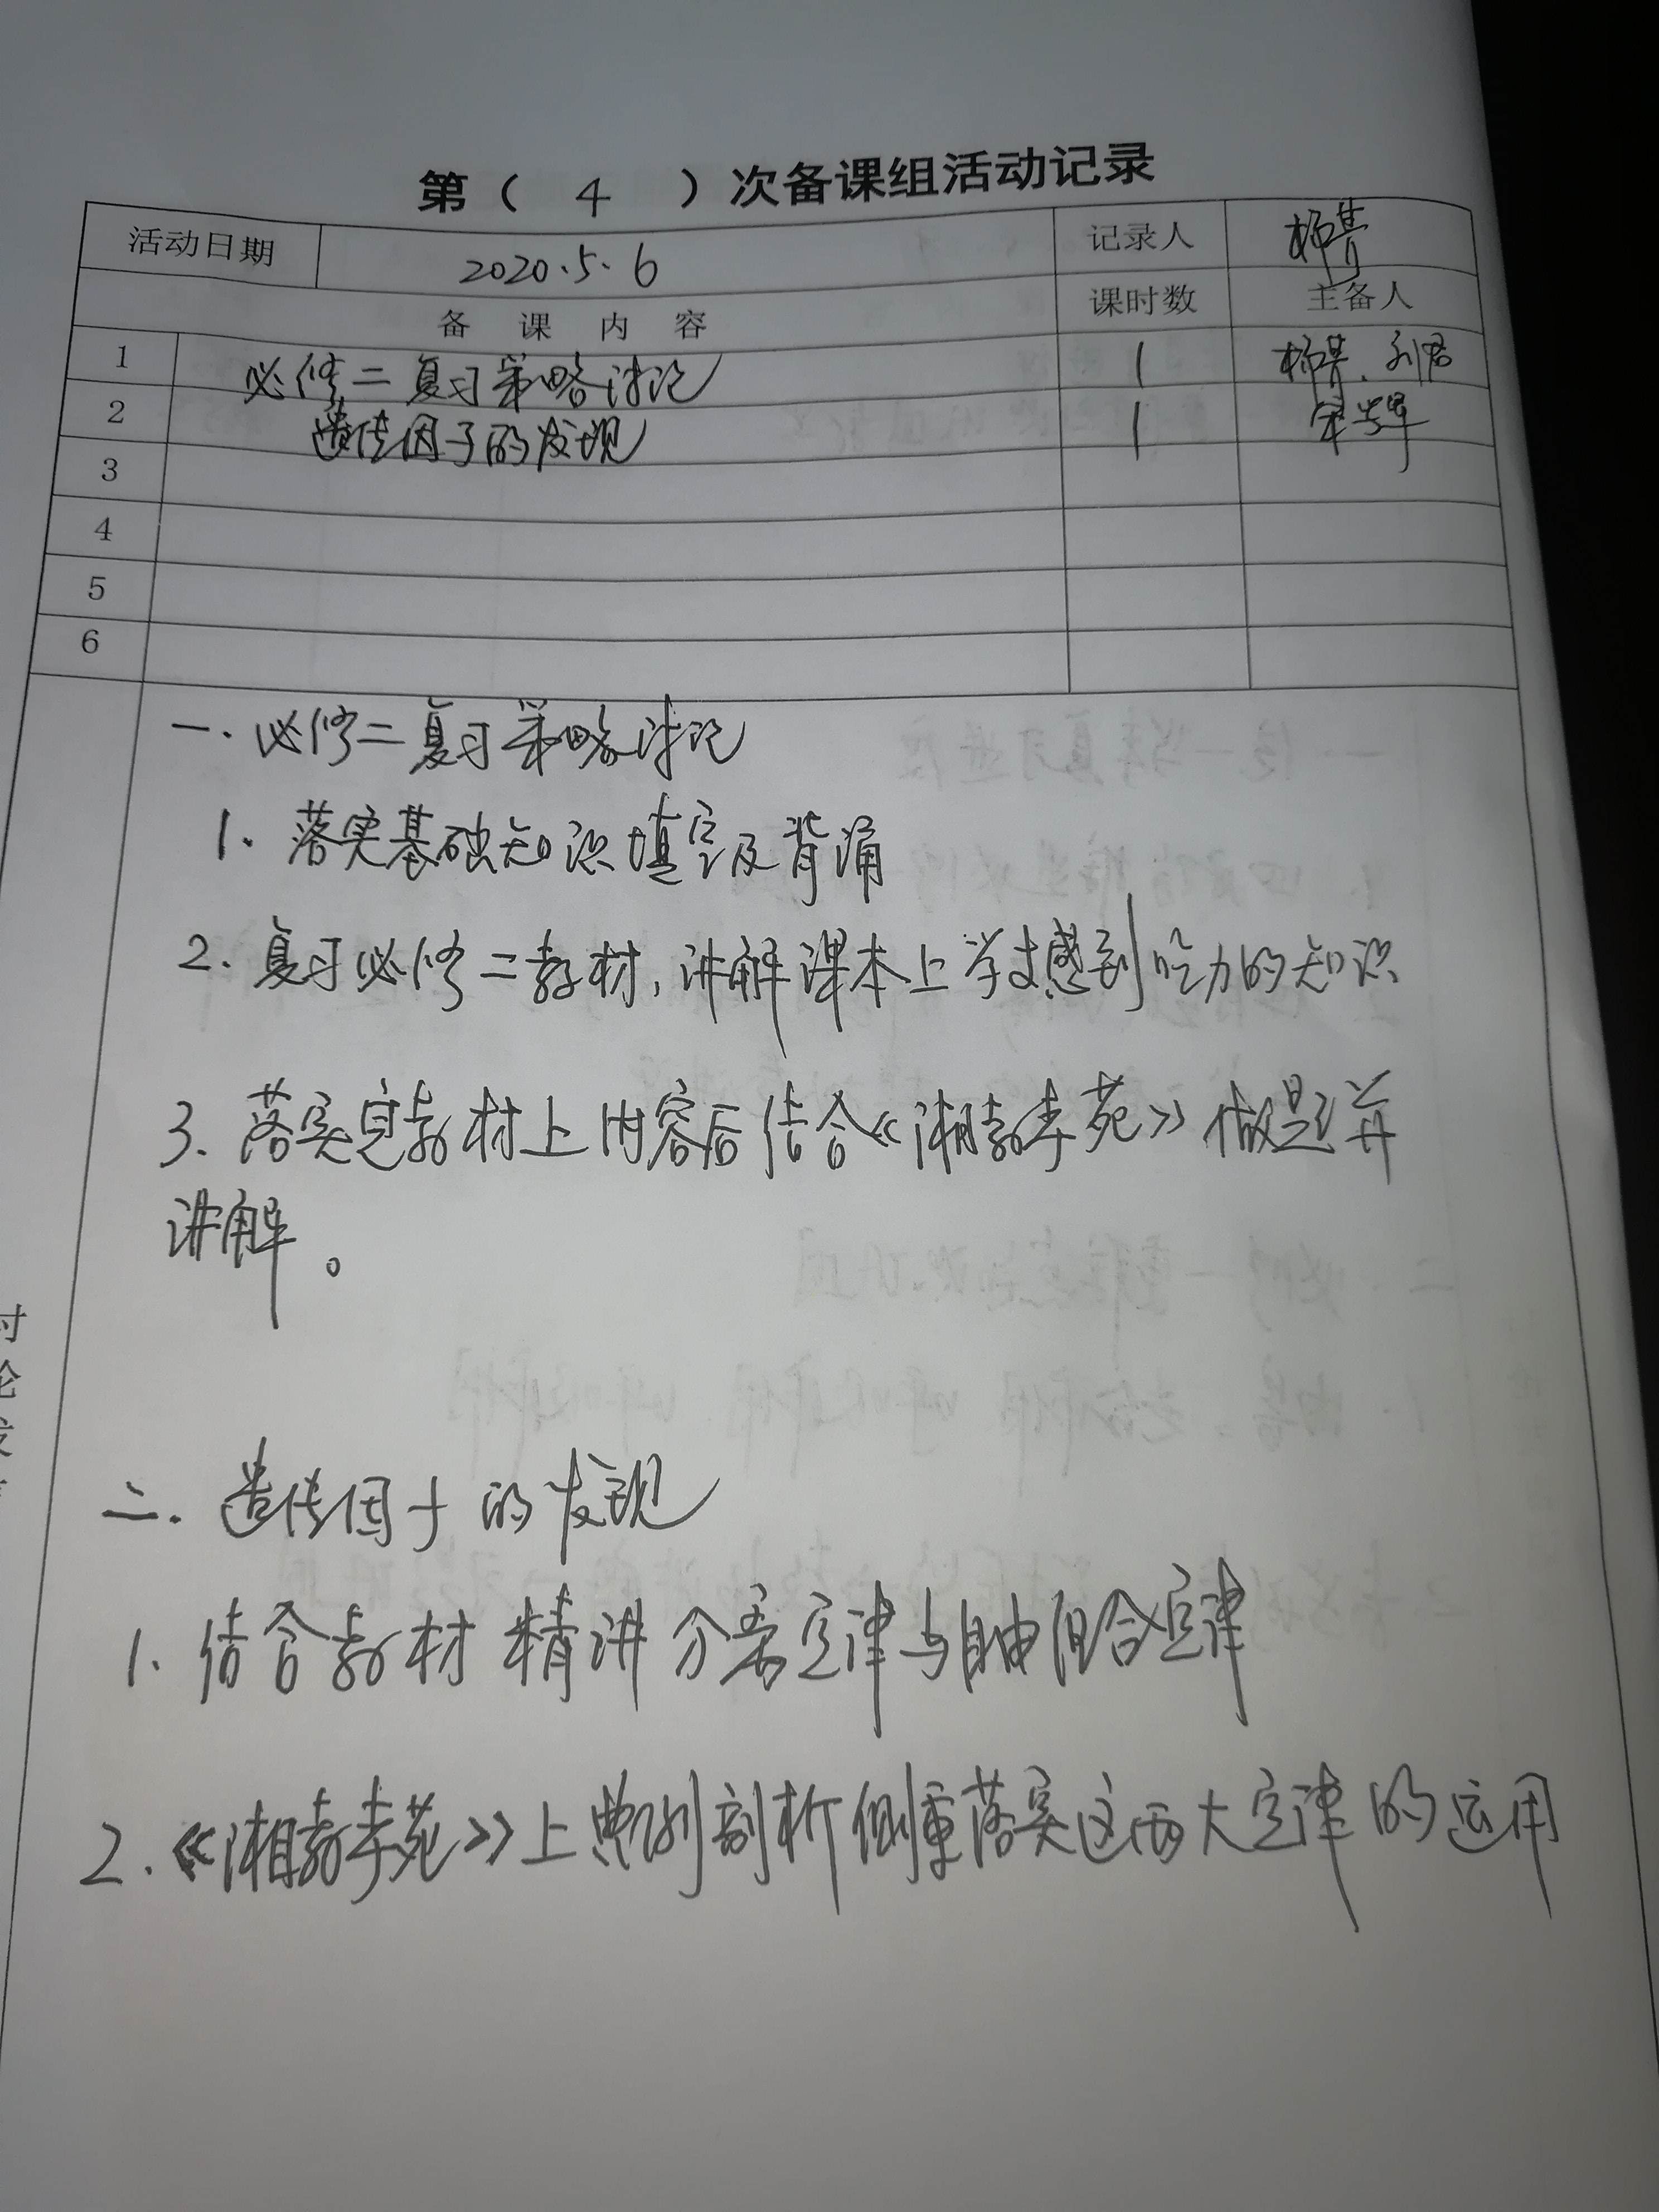 第（ 4 ）次备课组活动记录
活动日期 2020.5.6 记录人
备 课 内 容 课时数 主备人
1 必修二复习策略讨论 1
2 遗传因子的发现 1
3
4
5
6
一.必修二复习策略讨论
1.落实基础知识填空及背诵
2.复习必修二教材,讲解课本上学生感到吃力的知识
3.落实完教材上内容后结合《湘教考苑》做题并
讲解。
讨
论
发
二.遗传因子的发现
1.结合教材精讲分离定律与自由组合定律
2.《湘教考苑》上典例剖析侧重落实这两大定律的运用